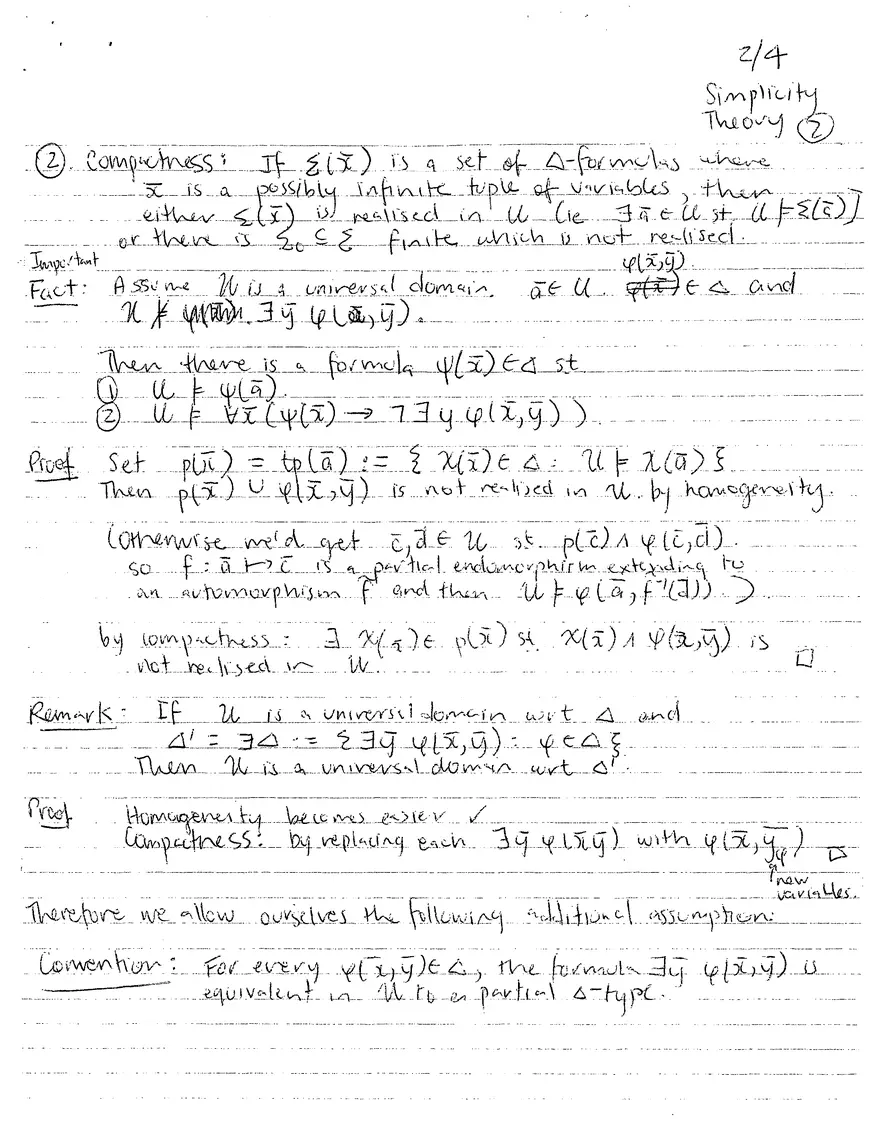 2/4
Simplicity
Theory ②
②. Compactness: If Σ(x̄) is a set of Δ-formulas where
x̄ is a possibly infinite tuple of variables, then
either Σ(x̄) is realised in U (ie ∃ ā ∈ U st U ⊨ Σ(ā))
or there is Σ₀ ⊆ Σ finite which is not realised.
Important
Fact: Assume U is a universal domain. ā ∈ U. φ(x̄,ȳ) ∈ Δ and
U ⊭ ∃ȳ φ(ā,ȳ).
Then there is a formula ψ(x̄) ∈ Δ st
① U ⊨ ψ(ā)
② U ⊨ ∀x̄(ψ(x̄) → ¬∃y φ(x̄,ȳ))
Proof Set p(x̄) = tp(ā) := { χ(x̄) ∈ Δ : U ⊨ χ(ā) }
Then p(x̄) ∪ φ(x̄,ȳ) is not realised in U. by homogeneity.
(Otherwise we'd get c̄,d̄ ∈ U st. p(c̄) ∧ φ(c̄,d̄).
so f: ā ↦ c̄ is a partial endomorphism extending to
an automorphism f̄ and then U ⊨ φ(ā, f⁻¹(d̄)).)
by compactness: ∃ χ(x̄) ∈ p(x̄) st. χ(x̄) ∧ φ(x̄,ȳ) is
not realised in U. □
Remark: If U is a universal domain wrt Δ and
Δ' = ∃Δ := { ∃ȳ φ(x̄,ȳ) : φ ∈ Δ }
Then U is a universal domain wrt Δ'.
Proof Homogeneity becomes easier ✓
Compactness: by replacing each ∃ȳ φ(x̄ȳ) with φ(x̄,ȳ_φ) □
↑ new
variables.
Therefore we allow ourselves the following additional assumption:
Convention: For every φ(x̄,ȳ) ∈ Δ, the formula ∃ȳ φ(x̄,ȳ) is
equivalent in U to a partial Δ-type.